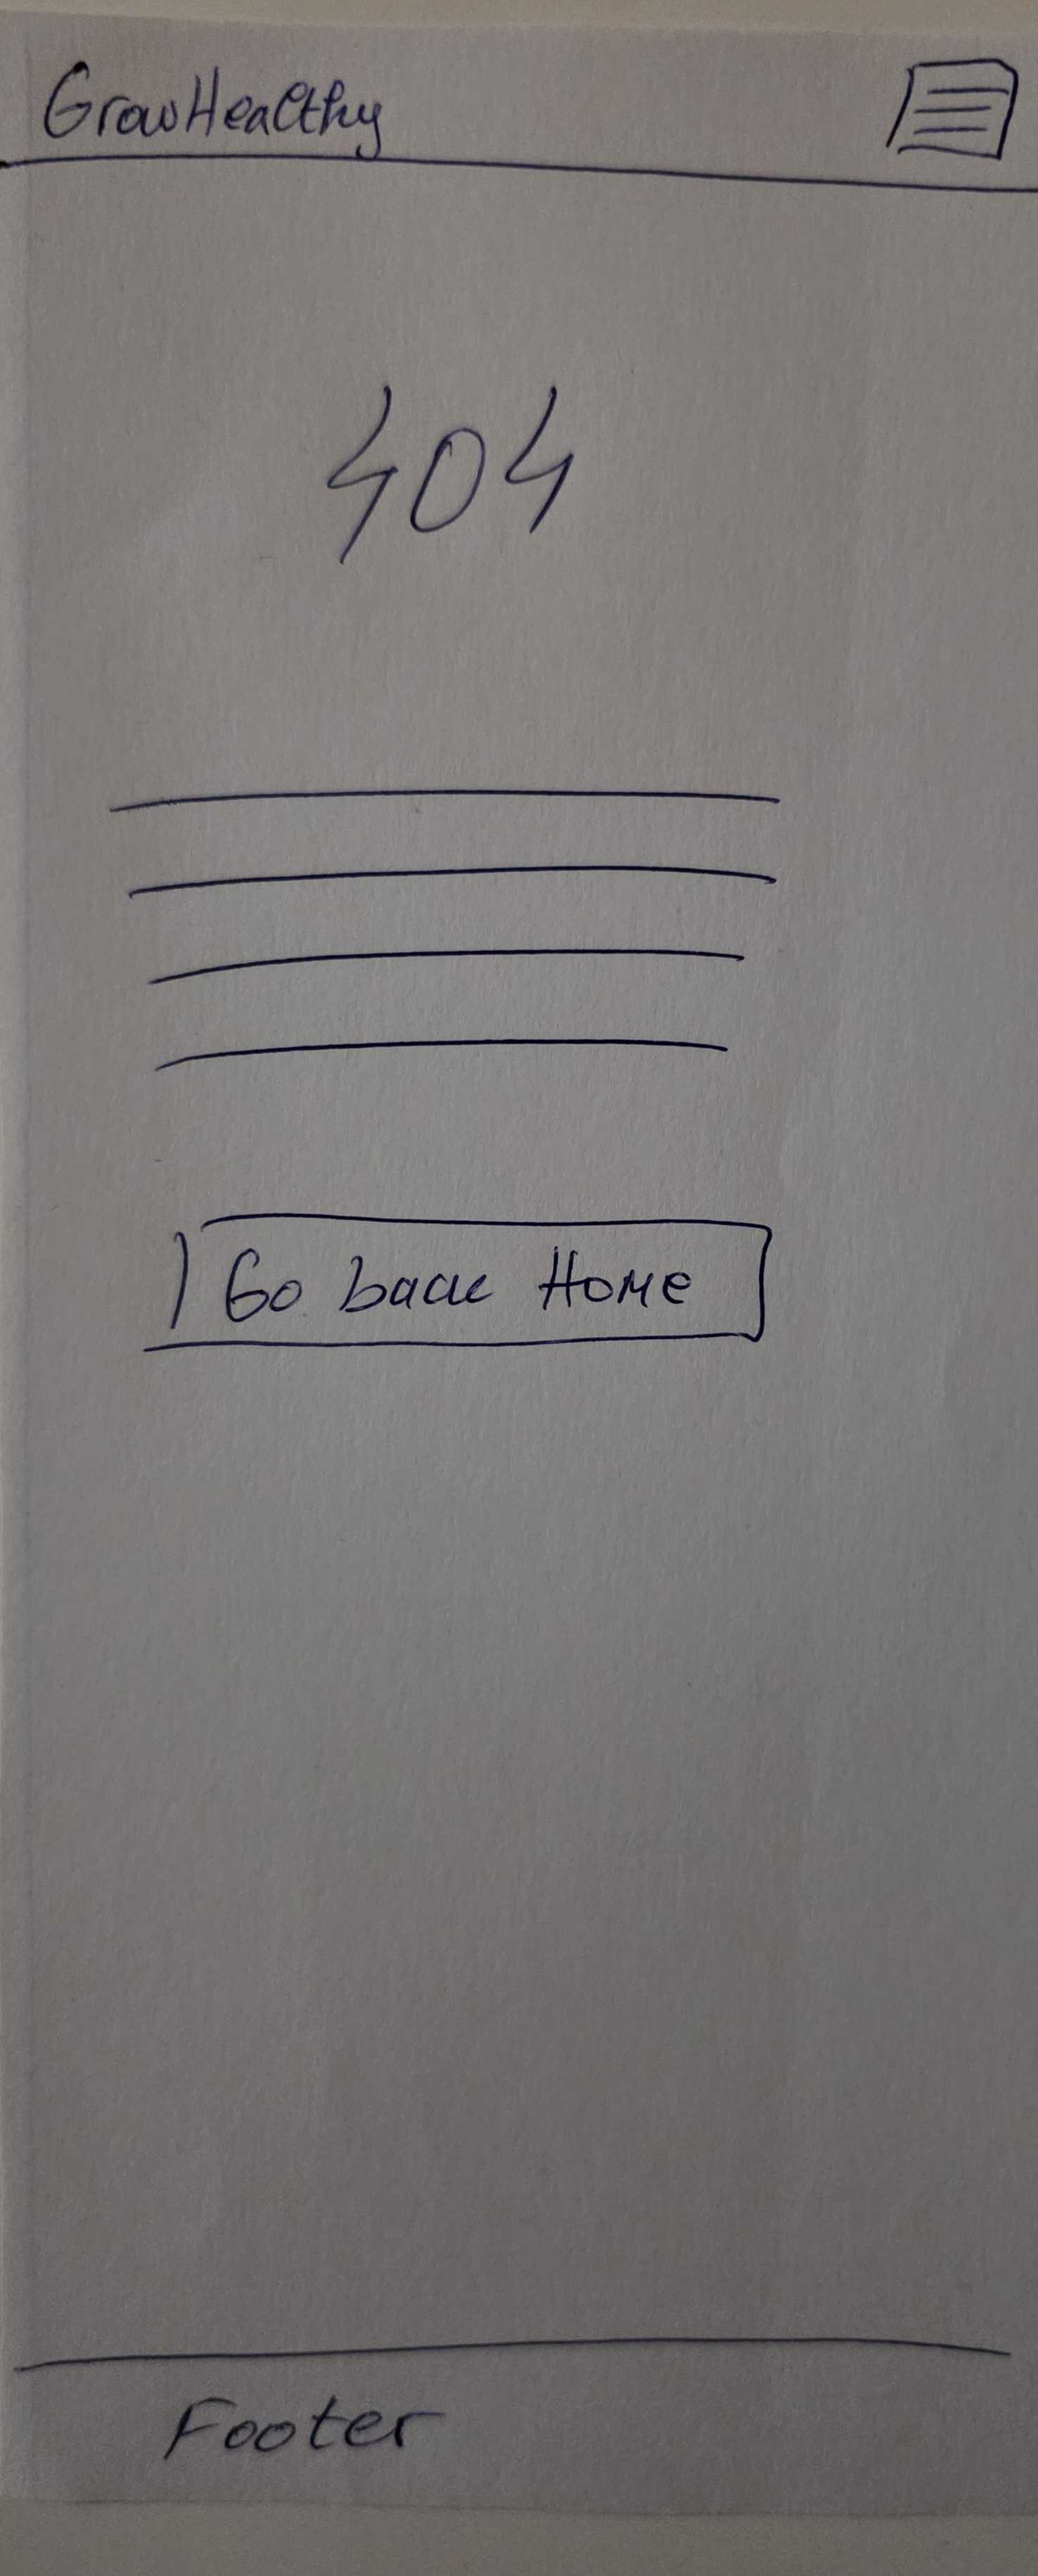 GrowHealthy
404
Go back Home
Footer